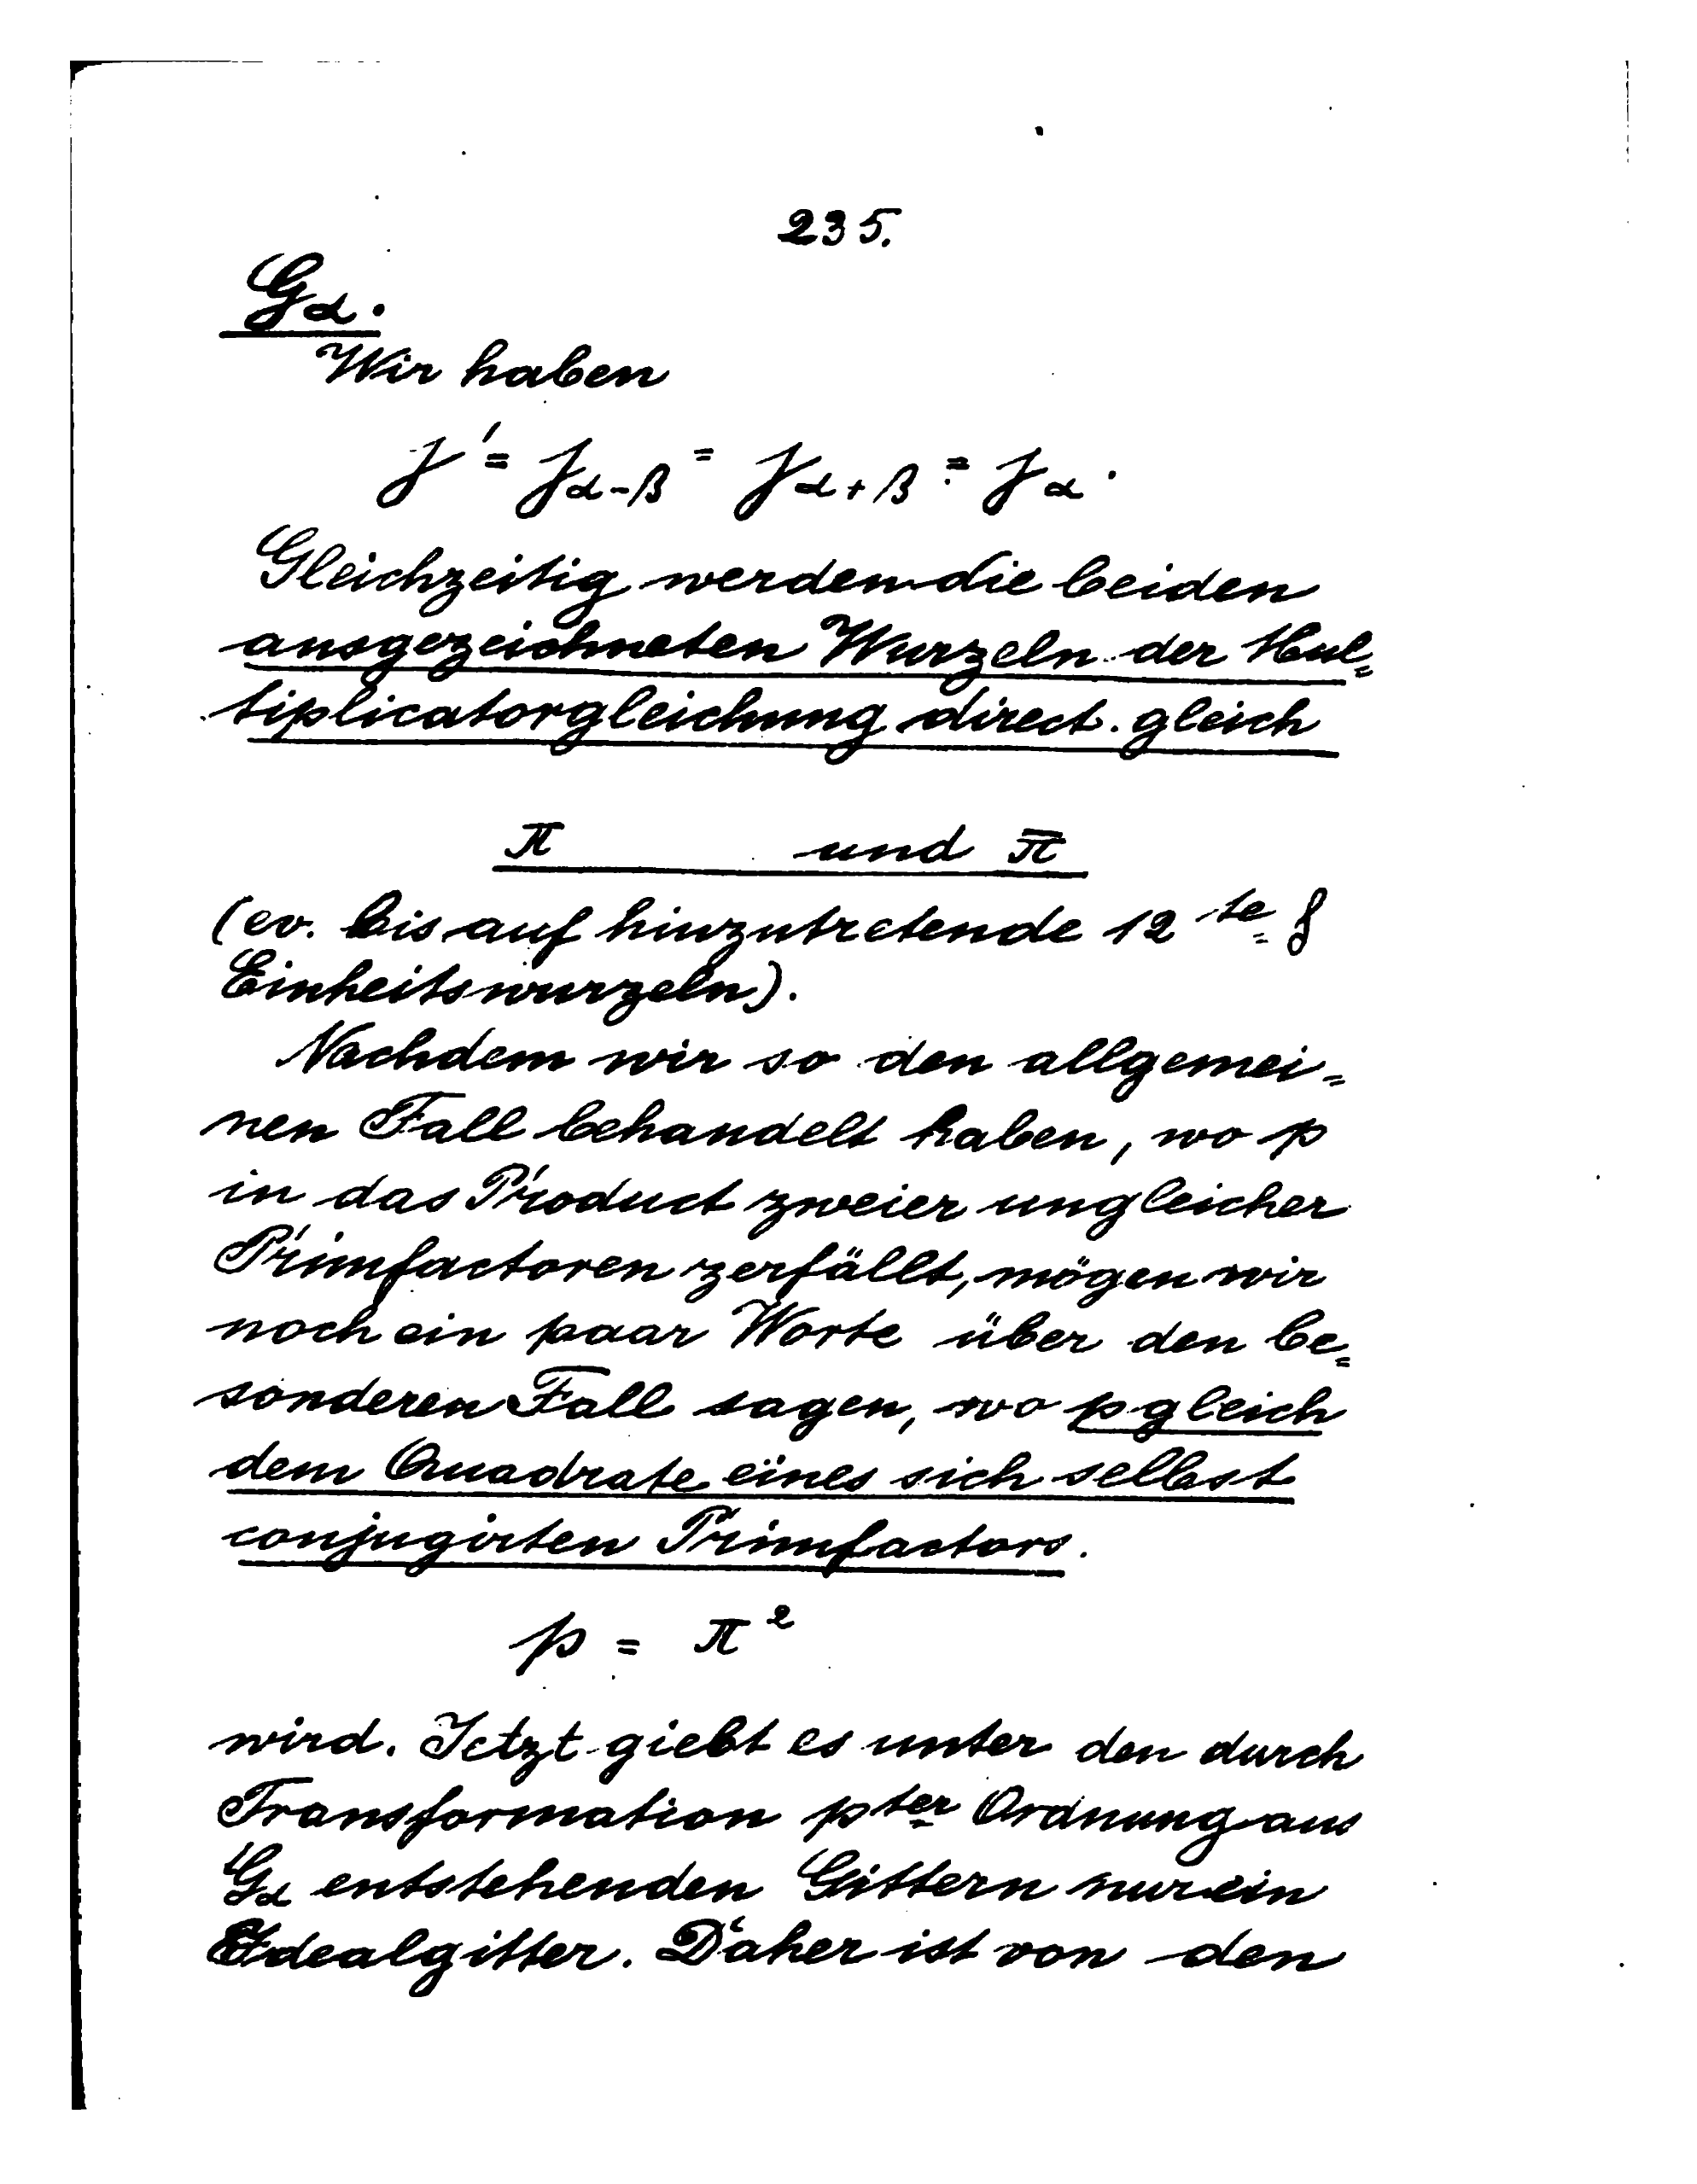 235.
G_α.
Wir haben
J' = J_{α-β} = J_{α+β} = J_α.
Gleichzeitig werden die beiden
ausgezeichneten Wurzeln der Mul=
tiplicatorgleichung direct gleich
π und π̄
(ev. bis auf hinzutretende 12te=
Einheitswurzeln).
Nachdem wir so den allgemei=
nen Fall behandelt haben, wo p
in das Product zweier ungleicher
Primfactoren zerfällt, mögen wir
noch ein paar Worte über den be=
sonderen Fall sagen, wo p gleich
dem Quadrate eines sich selbst
conjugirten Primfactors.
p = π²
wird. Jetzt giebt es unter den durch
Transformation pter Ordnung aus
G_α entstehenden Gittern nur ein
Idealgitter. Daher ist von den